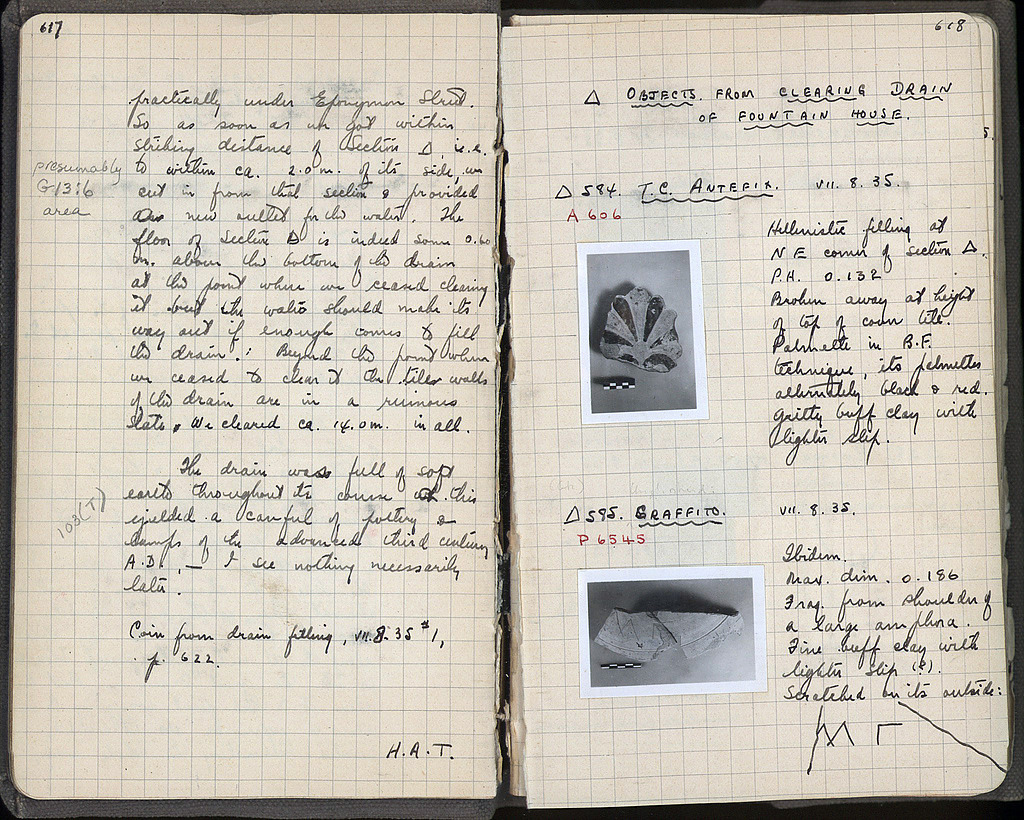 617
practically under Eponymon Street.
So as soon as we got within
striking distance of Section Δ, i.e.
to within ca. 2.0 m. of its side, we
cut in from that section & provided
a new outlet for the water. The
floor of Section Δ is indeed some 0.60
m. above the bottom of the drain
at the point where we ceased clearing
it but the water should make its
way out if enough comes to fill
the drain. Beyond the point where
we ceased to clear it the tile walls
of the drain are in a ruinous
state. We cleared ca. 14.0 m. in all.
presumably
G 13:6
area
The drain was full of soft
earth throughout its course & this
yielded a canful of pottery &
lamps of the advanced third century
A.D., — I see nothing necessarily
later.
103(T)
Coin from drain filling, VII. 8. 35 #1,
p. 622.
H.A.T.
618
Δ OBJECTS FROM CLEARING DRAIN
OF FOUNTAIN HOUSE.
5.
Δ 584. T.C. ANTEFIX. VII. 8. 35.
A 606
Hellenistic filling at
NE corner of section Δ.
P.H. 0.132
Broken away at height
of top of cover tile.
Palmette in R.F.
technique, its palmettes
alternately black & red.
Gritty buff clay with
lighter slip.
Δ 585. GRAFFITO. VII. 8. 35.
P 6545
Ibidem.
Max. dim. 0.186
Frag. from shoulder of
a large amphora.
Fine buff clay with
lighter slip (?).
Scratched on its outside:
Μ Γ